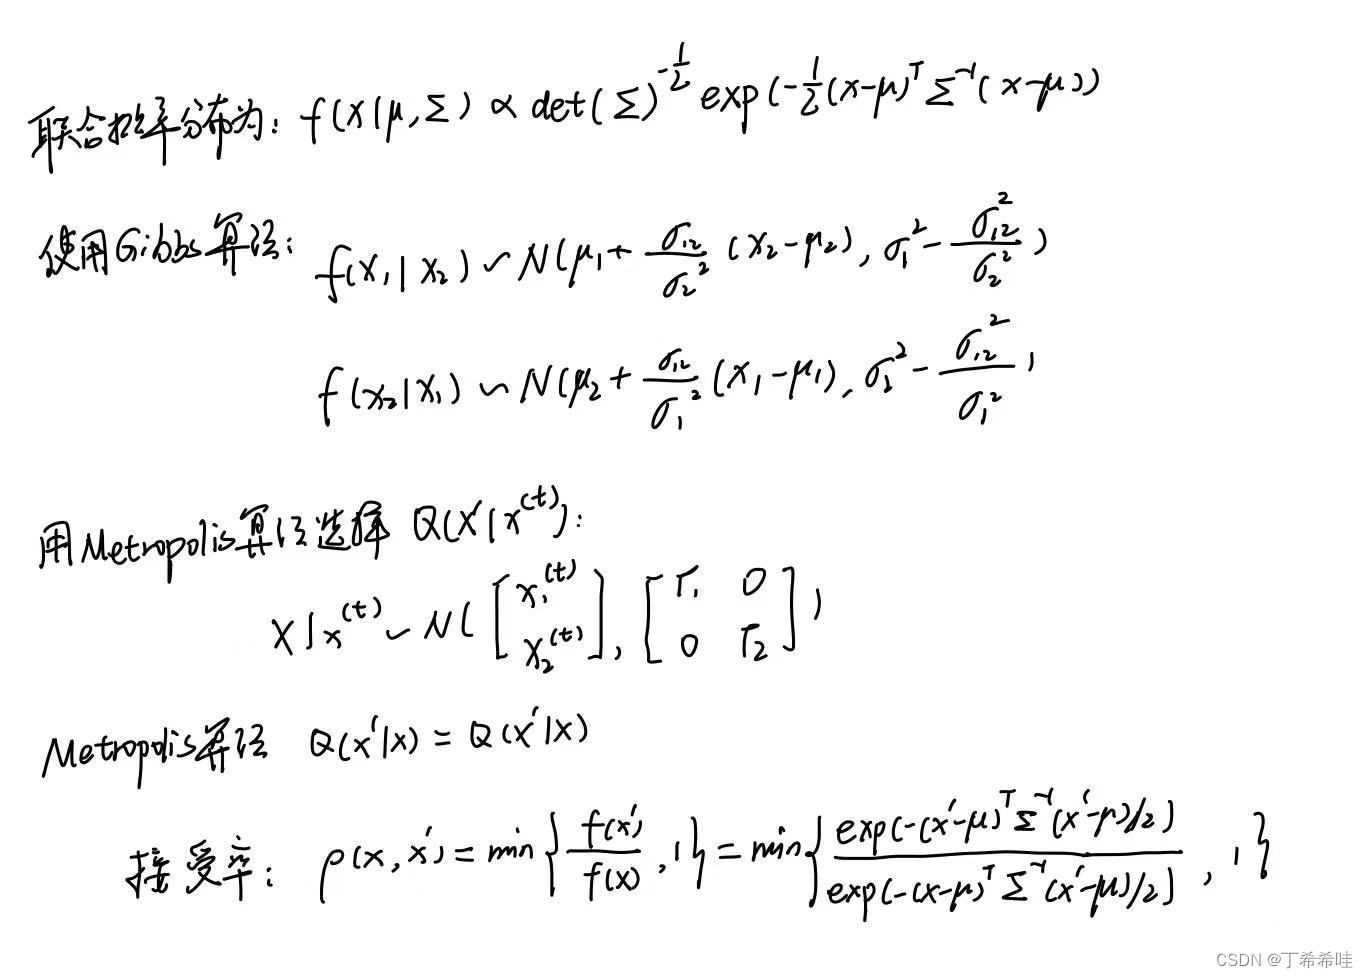 联合概率分布为: f(x|μ,Σ) ∝ det(Σ)^{-1/2} exp(-1/2(x-μ)^T Σ^{-1}(x-μ))
使用Gibbs算法: f(x₁|x₂) ~ N(μ₁+σ₁₂/σ₂²(x₂-μ₂), σ₁²-σ₁₂²/σ₂²)
f(x₂|x₁) ~ N(μ₂+σ₁₂/σ₁²(x₁-μ₁), σ₂²-σ₁₂²/σ₁²)
用Metropolis算法选择 Q(x'|x^{(t)}):
X|x^{(t)} ~ N([x₁^{(t)} x₂^{(t)}], [Γ₁ 0 0 Γ₂])
Metropolis算法 Q(x'|x) = Q(x'|x)
接受率: ρ(x,x') = min{f(x')/f(x), 1} = min{exp(-(x'-μ)^T Σ^{-1}(x'-μ)/2)/exp(-(x-μ)^T Σ^{-1}(x'-μ)/2), 1}
CSDN @丁希希哇